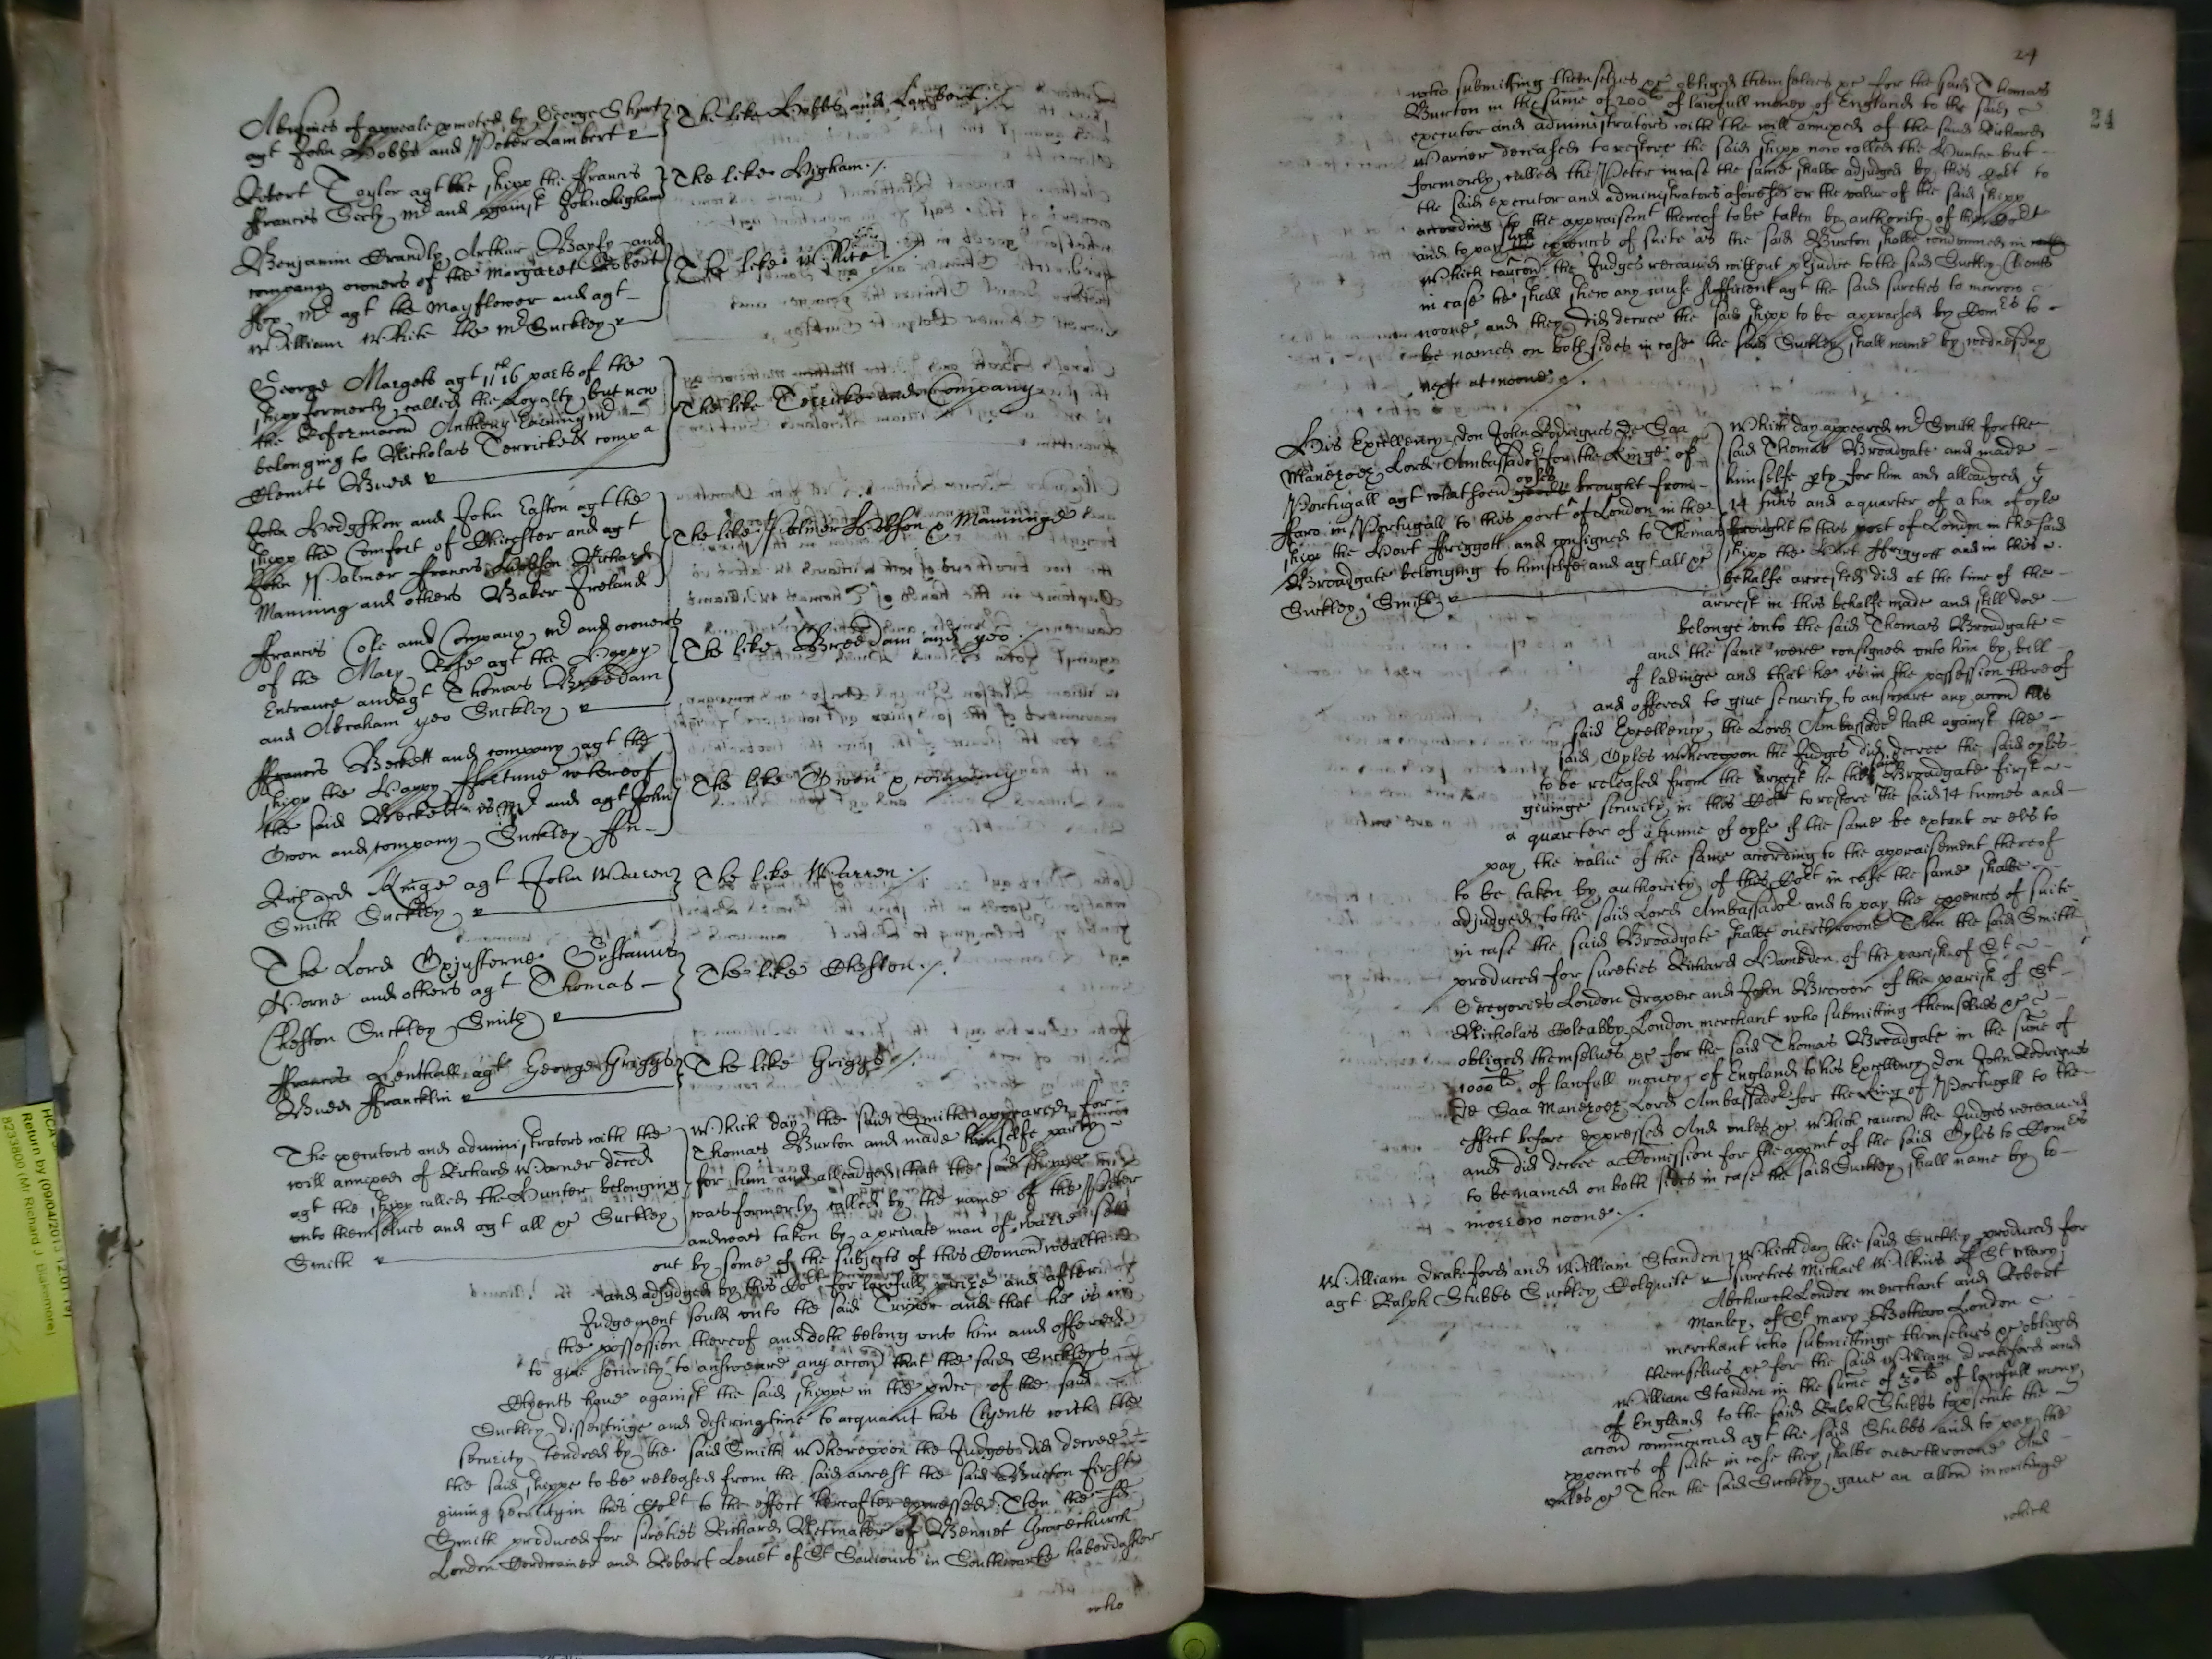 A busines of appeale promoted by George Short
agt John Hobbs and Peter Lambert
The like Hobbs and Lambert.
Robert Taylor agt the shipp the ffrancis
ffrancis Seely Mr and against John Higham
The like Higham./.
Benjamin Crandly Arthur Bayly and
company owners of the Margaret Robert
ffox Mr agt the Mayflower and agt
William White the Mr Suckley
The like White
George Margets agt 11 16th parts of the
shipp formerly called the Loyalty but now
the Reformacon Anthony Earning Mr
belonging to Nicholas Terrick et compa
Clemts Budd
The like Terricke and Company
John Hodgshon and John Easton agt the
shipp the Comfort of Chichester and agt
John Palmer ffrancis Hobson Richard
Manning and others Baker Ireland
The like Palmer Hobson & Manninge
ffrancis Cole and Company Mr and owners
of the Mary Rose agt the Happy
Entrance and agt Thomas Breedam
and Abraham yeo Suckley
The like Breedam and yeo
ffrancis Beckett and company agt the
shipp the Happy ffortune whereof
the said Beckett is Mr and agt John
Owen and company Suckley ffr
The like Owen & company
Richard Kinge agt John Warren
Smith Suckley
The like Warren.
The Lord Oxjusterne Gustavus
Horne and others agt Thomas
Cheston Suckley Smith
The like Cheston./.
ffrancis Lenthall agt George Griggs
Budd ffrancklin
The like Griggs./.
The executors and administrators with the
will annexed of Richard Warner deced
agt the shipp called the Hunter belonging
unto themselves and agt all &c Suckley
Smith
Which day the said Smith appeared for
Thomas Burton and made himselfe party
for him and alleadged that the said shippe
was formerly called by the name of the Peter
and was taken by a private man of warre sett
out by some of the subjects of this Comonwealth
and adjudged by this Cort for lawfull prize and after
Judgement sould unto the said and that he is in
the possession thereof and doth belong unto him and offered
to give security to answeare any accon that the said Suckleys
Clyents have against the said shippe in the pnce of the said
Suckley dissentinge and desiring time to acquaint his Clyents with the
security tendred by the said Smith Whereupon the Judges did decree
the said shippe to be released from the said arrest the said Burton first
giving security in this Cort to the effect hereafter expressed. Then the sd
Smith produced for sureties Richard Netmaker of Bennet Gracechurch
London Cordwainer and Robert Levet of St Saviours in Southwarke haberdasher
who
24
24
who submitting themselves &c obliged themselves &c for the said Thomas
Burton in the sume of 200li of lawfull money of England to the said
executor and administrators with the will annexed of the said Richard
Warner deceased to restore the said shipp now called the Hunter but
formerly called the Peter in case the same shalbe adjudged by this Cort to
the said executor and administrators aforesd or the value of the said shipp
according to the appraisemt thereof to be taken by authority of this Cort
and to pay such expences of suite as the said Burton shalbe condemned in
Which caucon the Judges received without prejudice to the said Suckley Clients
in case he shall shew any cause sufficient agt the said sureties to morrow
noone and they did decree the said shipp to be appraised by Comrs to
be named on both sides in case the said Suckley shall name by wednesday
next at noone
His Excellency don John Rodrigues de Saa
Manezoez Lord Ambassador for the Kinge of
Portugall agt whatsoevr oyles brought from
ffaro in Portugall to this port of London in the
shipp the Hart ffriggott and consigned to Thomas
Broadgate belonging to himselfe and agt all &c
Suckley Smith
Which day appeared Mr Smith for the
said Thomas Broadgate and made
himselfe pty for him and alleadged yt
14 tunns and a quarter of a tun of oyle
brought to this port of London in the said
shipp the Hart ffriggott and in this
behalfe arrested did at the time of the
arrest in this behalfe made and still doe
belonge unto the said Thomas Broadgate
and the same were consigned unto him by bill
of ladinge and that he is in the possession thereof
and offered to give security to answeare any accon his
said Excellency the Lord Ambassador hath against the
said Oyles Whereupon the Judges did decree the said oyles
to be released from the arrest he the said Broadgate first
giveinge security in this Cort to restore the said 14 tunnes and
a quarter of a tunne of oyle if the same be extant or els to
pay the value of the same according to the appraisement thereof
to be taken by authority of this Cort in case the same shalbe
adjudged to the said Lord Ambassador and to pay the expences of suite
in case the said Broadgate shalbe overthrowne Then the said Smith
produced for sureties Richard Hambden of the parish of St
Gregories London draper and John Brewer of the parish of St
Nicholas Coleabby London merchant who submitting themselves &c
obliged themselves &c for the said Thomas Broadgate in the sume of
1000li of lawfull money of England to his Excellency don John Rodrigues
de Saa Manezoez Lord Ambassador for the King of Portugall to the
effect before expressed And unles &c. Which caucon the Judges received
and did decree a Comission for the appmt of the said Oyles to Comrs
to be named on both sides in case the said Suckley shall name by to
morrow noone./.
William drakeford and William Standen
agt Ralph Stubbs Suckley Colquite
Which day the said Suckley produced for
sureties Michael Wilkins of St Mary
Abchurch London merchant and Robert
Manley of St Mary Bothaw London
merchant who submittinge themselves &c obliged
themselves &c for the said William drakeford and
William Standen in the sume of 50li of lawfull mony
of England to the said Ralph Stubbs to prosecute the
accon commenced agt the said Stubbs and to pay the
expences of suite in case they shalbe overthrowne And
unles &c Then the said Suckley gave an allon in writinge
which
HCA
Return by (09/04/2013 12:01
8233800 (Mr Richard J Blakemore)